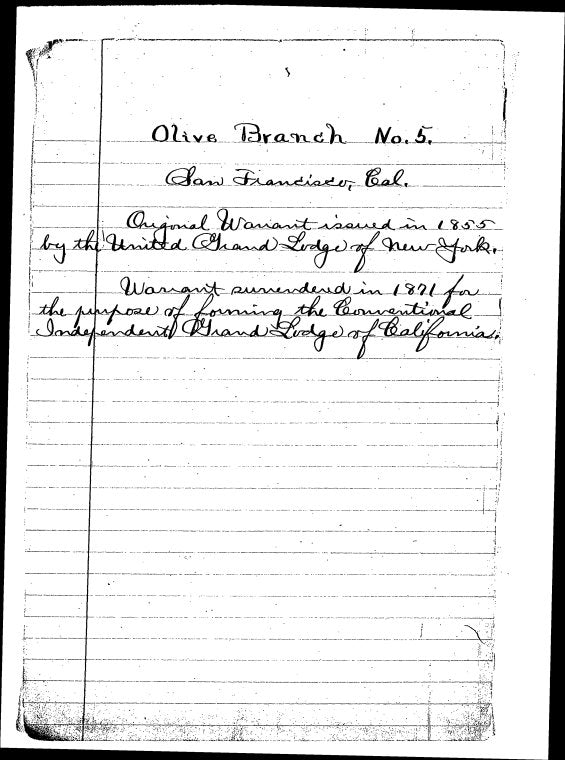 Olive Branch No. 5.
San Francisco, Cal.
Original Warrant issued in 1855
by the United Grand Lodge of New York.
Warrant surrendered in 1871 for
the purpose of forming the Conventional
Independent Grand Lodge of California.